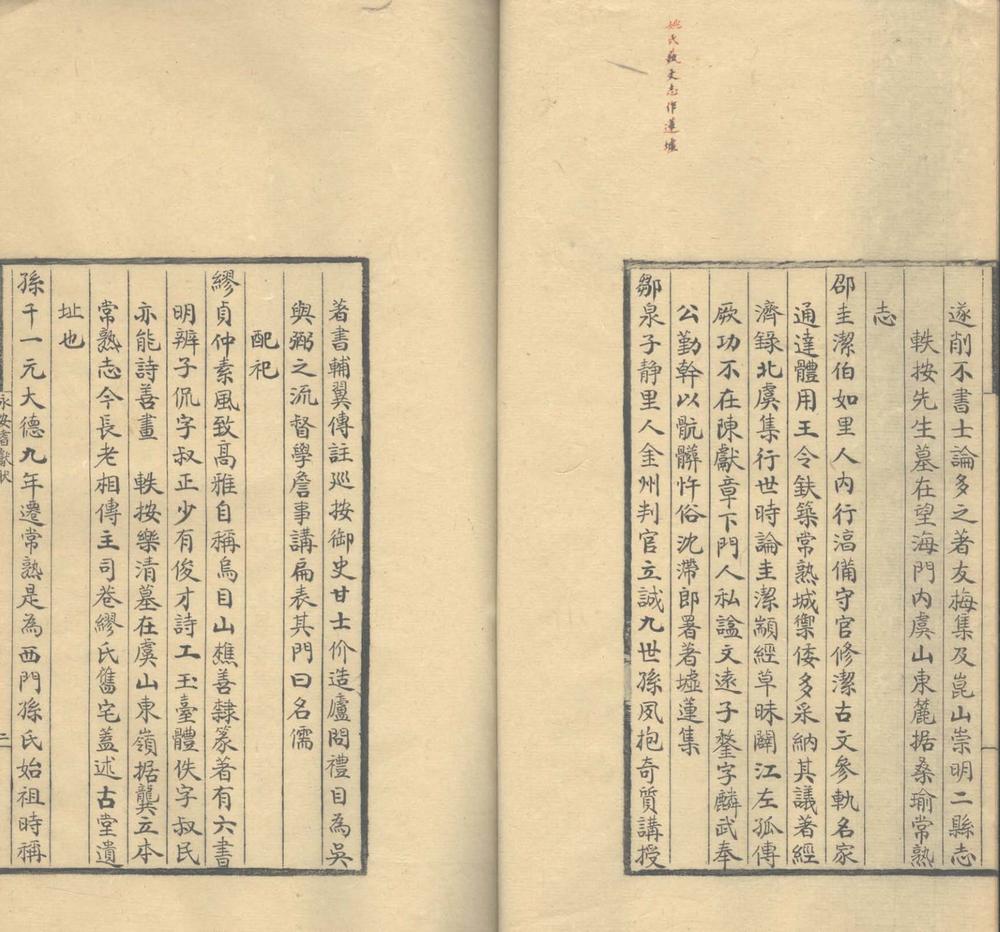 姚氏藝文志作蓮墟
遂削不書士論多之著友梅集及崑山崇明二縣志
軼按先生墓在望海門内虞山東麓据桑瑜常熟
志
邵圭潔伯如里人内行湻備守官修潔古文參軌名家
通達體用王令鈇築常熟城禦倭多采納其議著經
濟錄北虞集行世時論圭潔顓經草昧闢江左孤傳
厥功不在陳獻章下門人私諡文遠子鏊字麟武奉
公勤幹以骯髒忤俗沈滯郎署著墟蓮集
鄒泉子静里人金州判官立誠九世孫夙抱奇質講授
著書輔翼傳註廵按御史甘士价造廬問禮目為吳
與弼之流督學詹事講扁表其門曰名儒
配祀
繆貞仲素風致高雅自稱烏目山樵善隸篆著有六書
明辨子侃字叔正少有俊才詩工玉臺體佚字叔民
亦能詩善畫　軼按樂清墓在虞山東嶺据龔立本
常熟志今長老相傳主司巷繆氏舊宅蓋述古堂遺
址也
孫千一元大德九年遷常熟是為西門孫氏始祖時稱
二